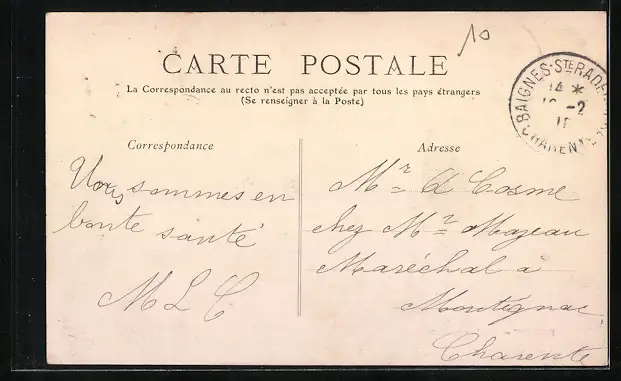 10
CARTE POSTALE
La Correspondance au recto n'est pas acceptée par tous les pays étrangers
(Se renseigner à la Poste)
BAIGNES-STE RADE
14 *
-2
CHARENTE
Correspondance
Adresse
Nous sommes en
bonte santé
M L C
Mr A Cosme
chez Mr Mazeau
Maréchal à
Montignac
Charente